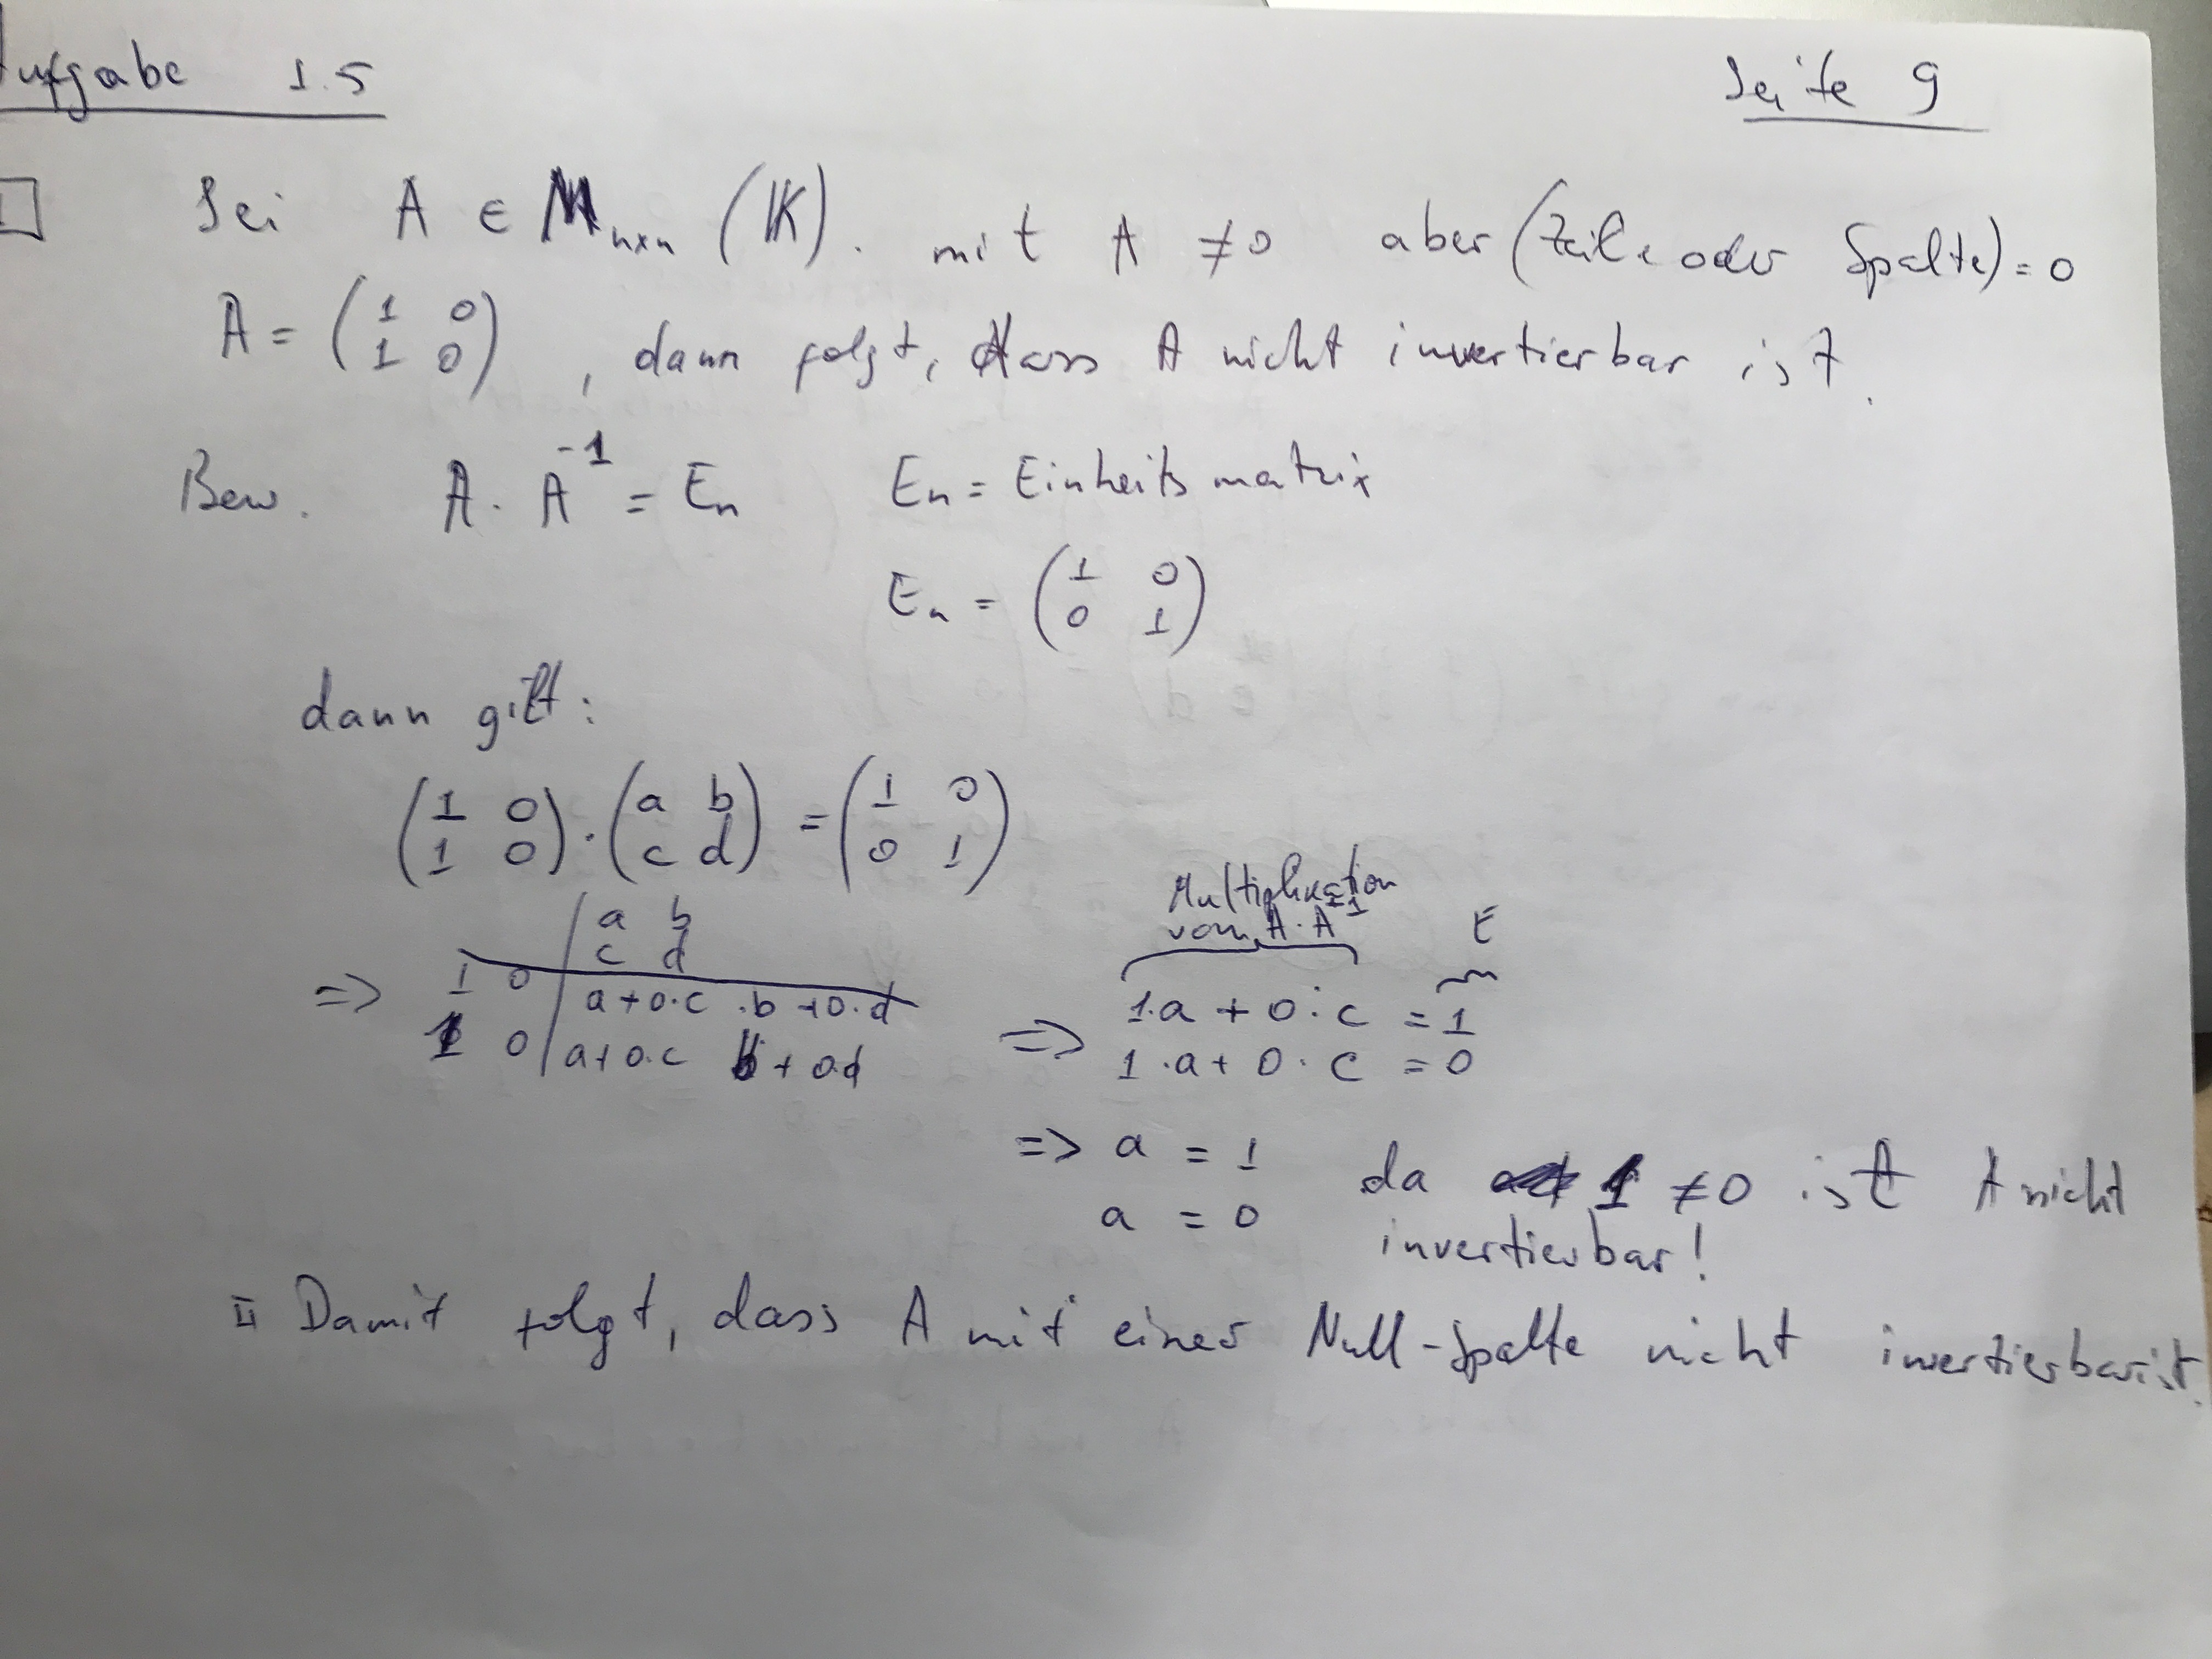 Aufgabe 1.5
Seite 9
Sei A ∈ M_{n×n} (K). mit A ≠ 0 aber (Zeile oder Spalte) = 0
A = (1 0; 1 0), dann folgt, dass A nicht invertierbar ist.
Bew. A · A^{-1} = E_n E_n = Einheitsmatrix
E_n = (1 0; 0 1)
dann gilt:
(1 0; 1 0) · (a b; c d) = (1 0; 0 1)
a b
c d
=> 1 0 | a + 0·c ·b + 0·d
1 0 | a + 0·c b + 0·d
Multiplikation
vom A·A^{-1} E
=> 1·a + 0·c = 1
1·a + 0·c = 0
=> a = 1 da 1 ≠ 0 ist A nicht
a = 0 invertierbar!
II Damit folgt, dass A mit einer Null-Spalte nicht invertierbar ist.